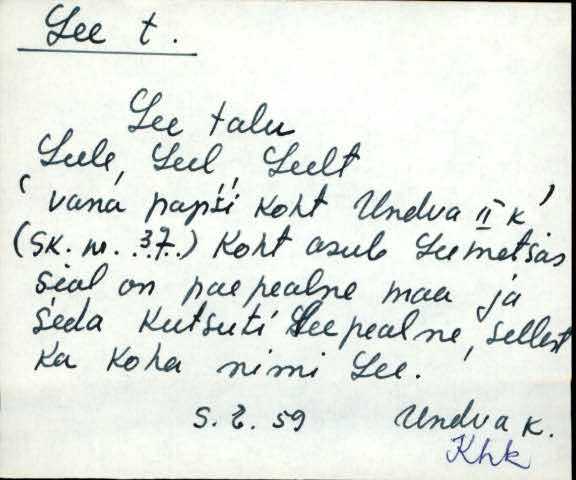 Lee t.
Lee talu
Leele, Leel, Leelt
'vana papśi koht Undva II k'
(SK. nr. 37.) Koht asub Leemetsas
śial on paepealne maa ja
śeda kutsuti Leepealne, sellest
ka koha nimi Lee.
S. E. 59 Undva k.
Khk